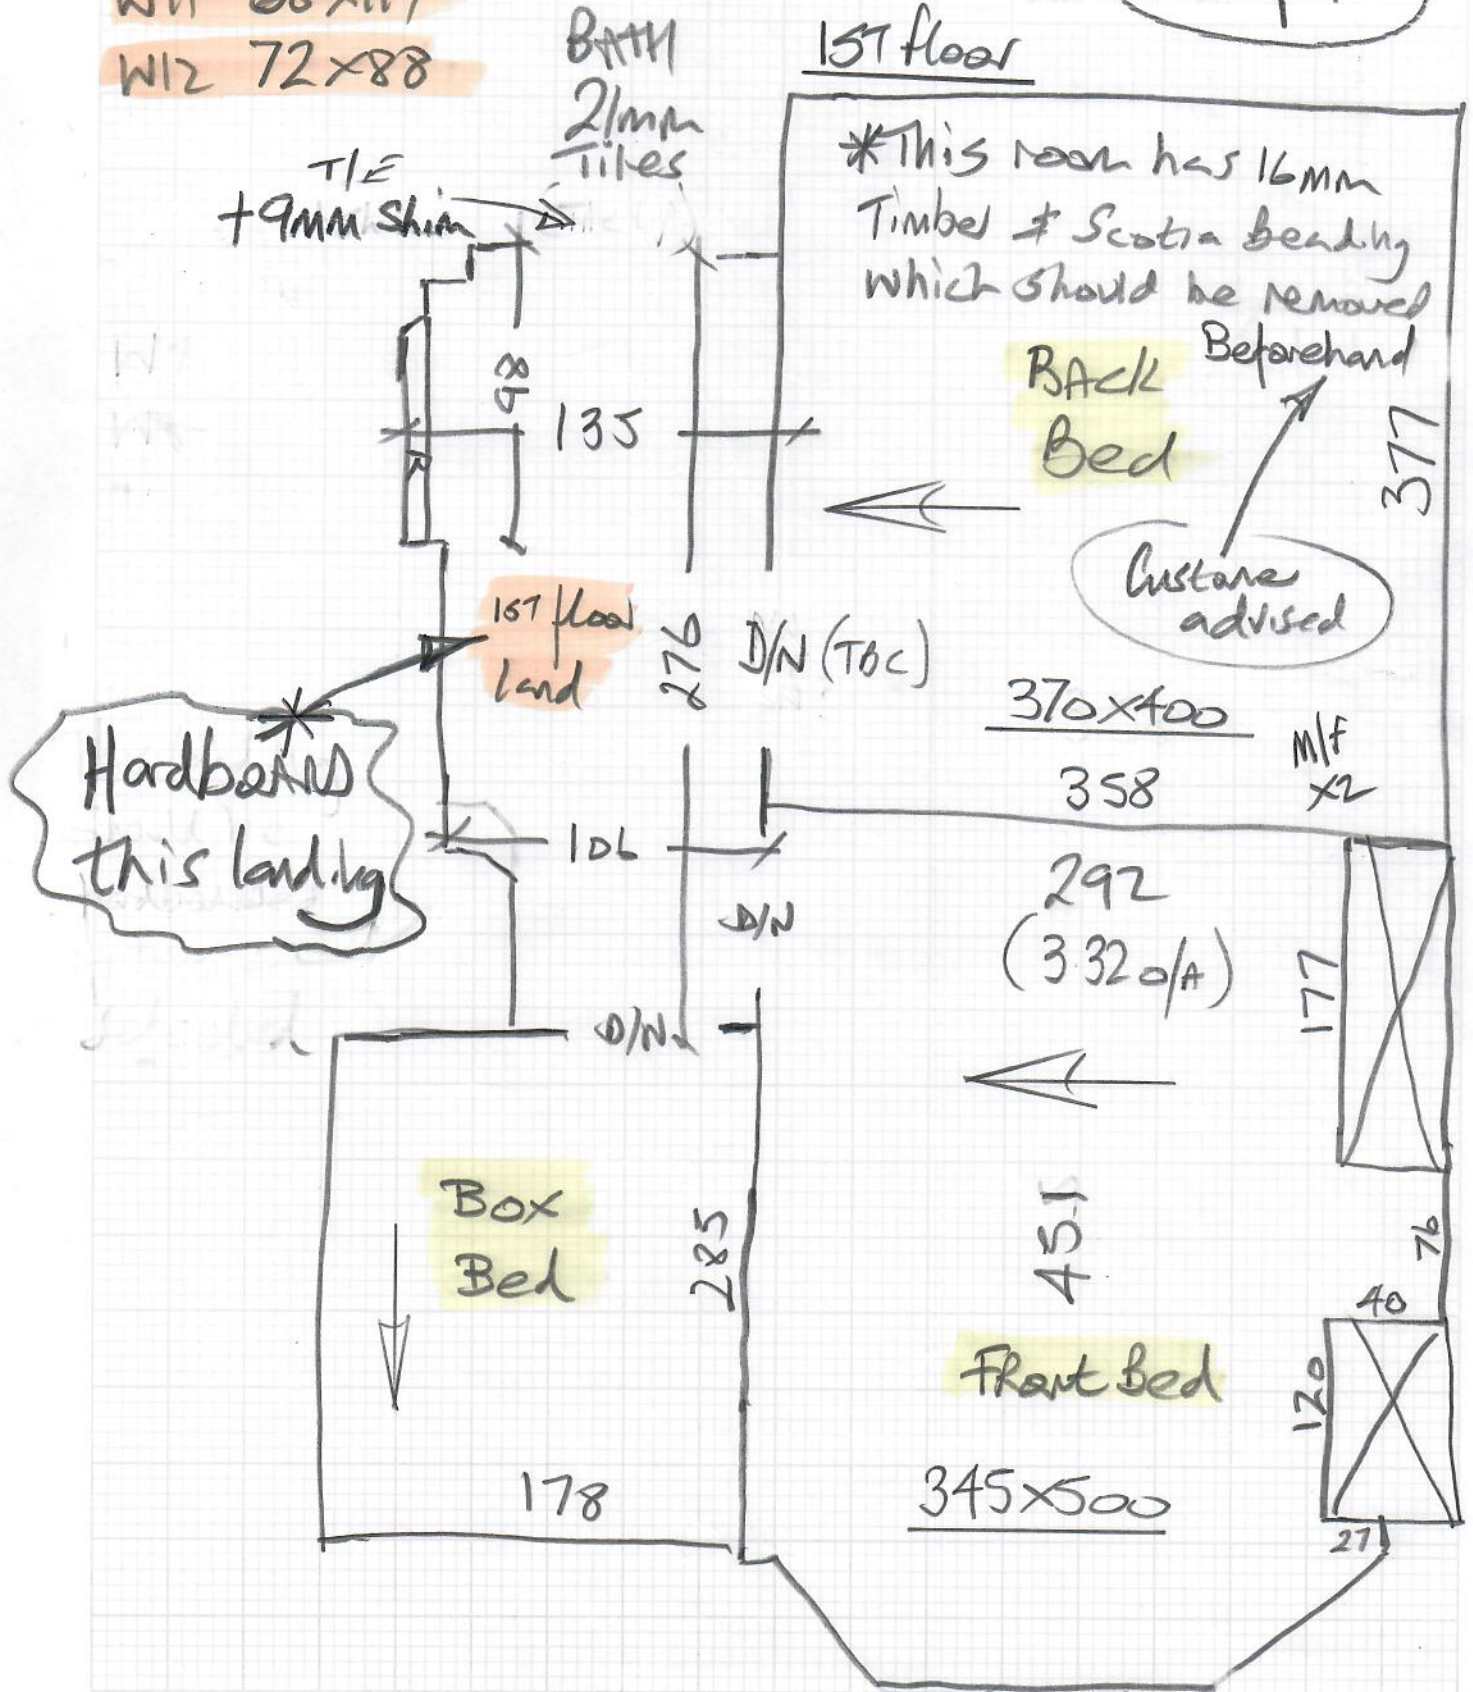 W12 72×88
BATH
21mm
Tiles
1ST floor
T/E
+9mm Shim
*This room has 16mm
Timber & Scotia Beading
which should be removed
Beforehand
BACK
Bed
377
98
135
Custome
advised
1ST floor
land
276
D/N (TBC)
370×400
M/F
×2
358
Hardboard
this landing
106
D/N
292
(3.32 O/A)
177
D/N
Box
Bed
285
451
76
40
Front Bed
120
178
345×500
27